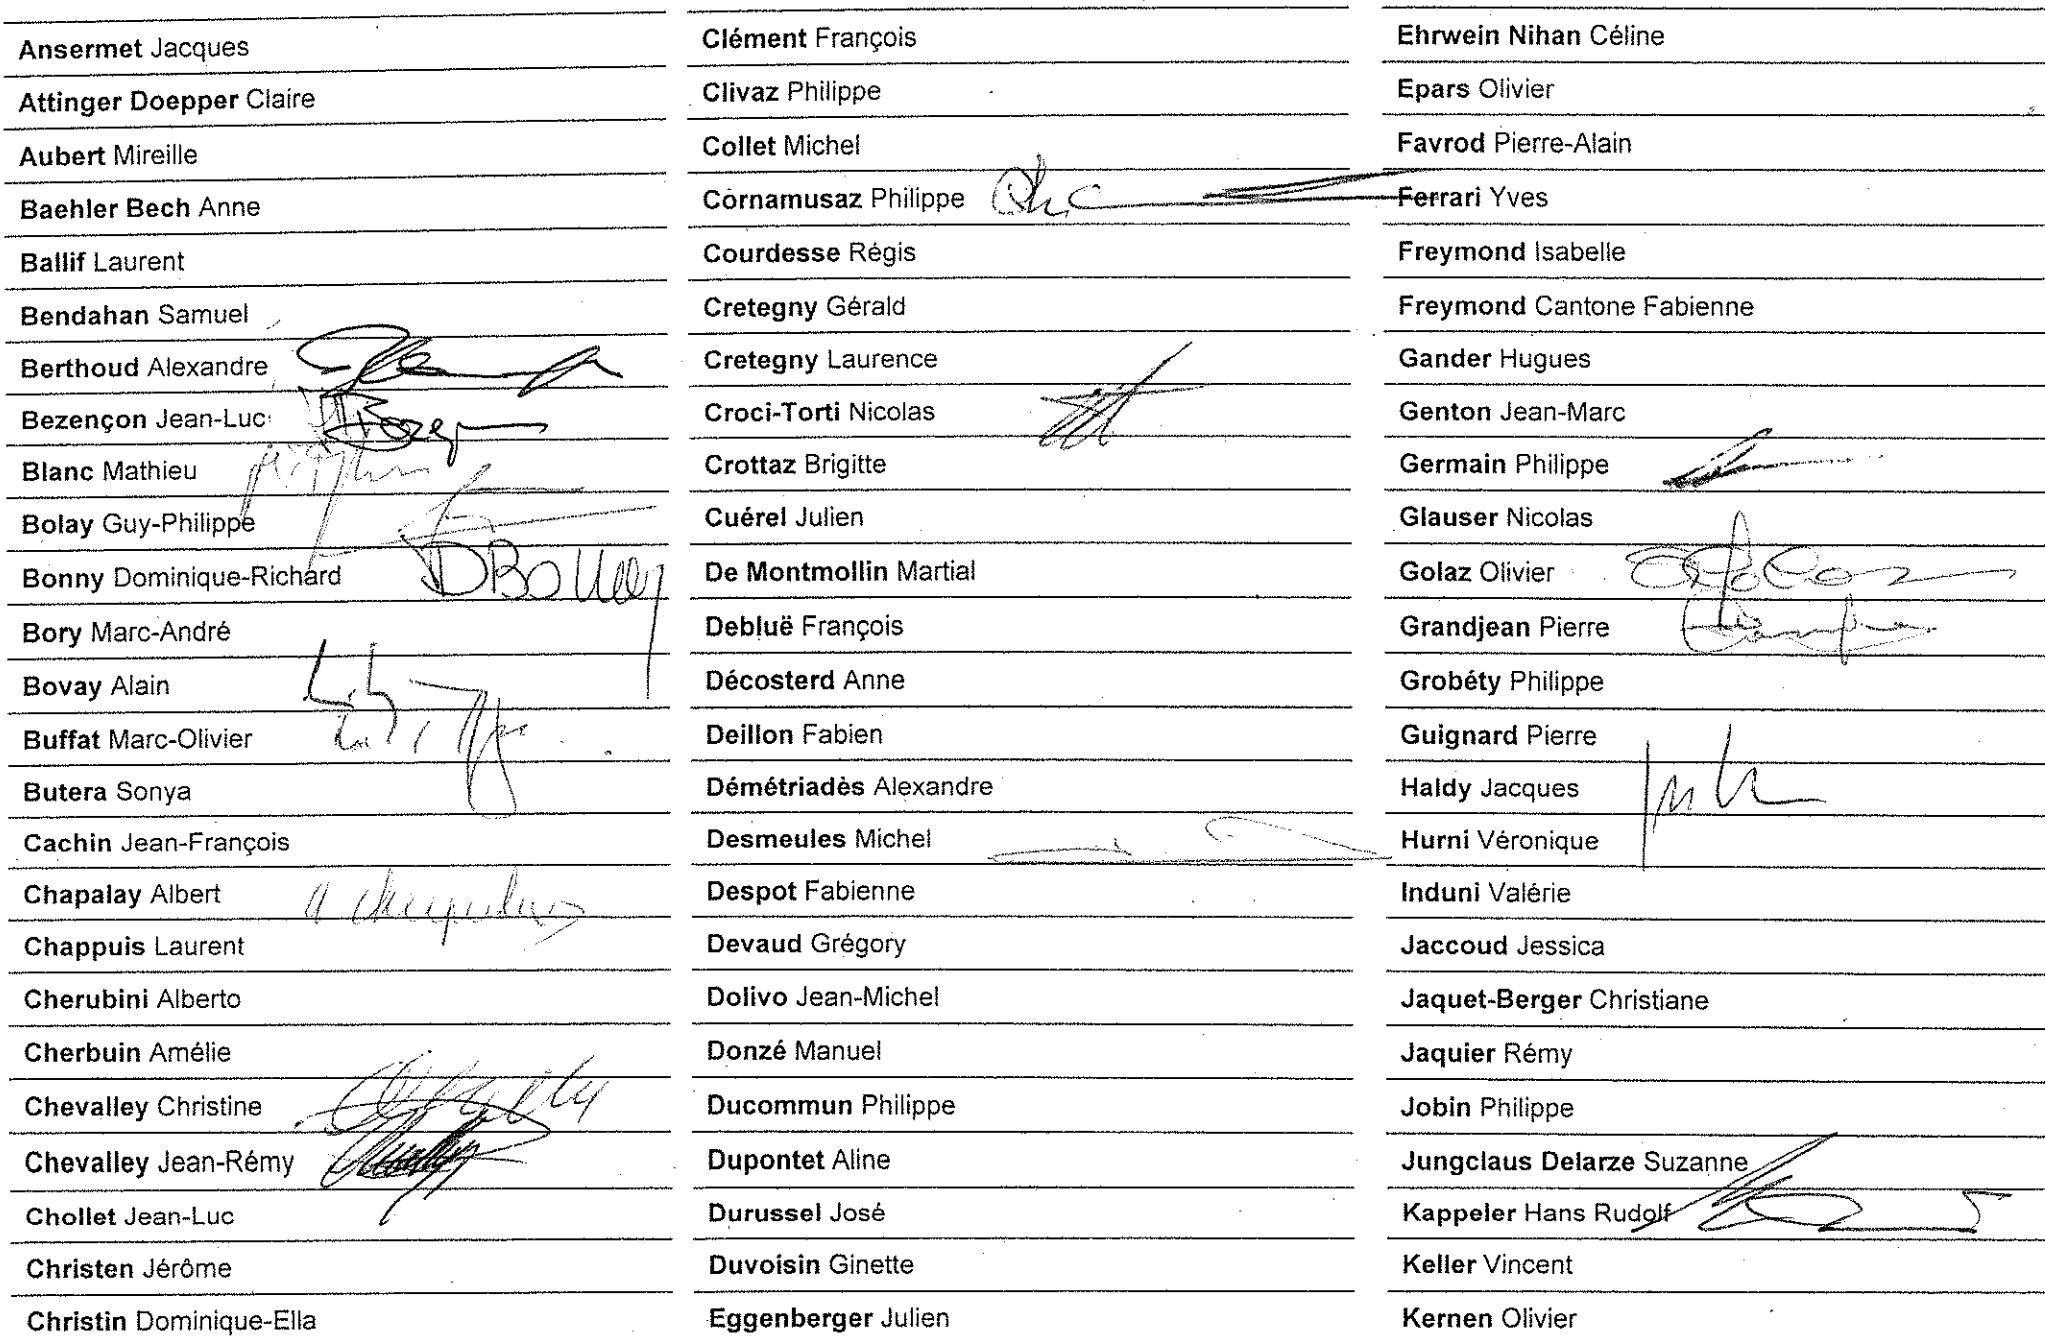 Ansermet Jacques
Attinger Doepper Claire
Aubert Mireille
Baehler Bech Anne
Ballif Laurent
Bendahan Samuel
Berthoud Alexandre
Bezençon Jean-Luc
Blanc Mathieu
Bolay Guy-Philippe
Bonny Dominique-Richard DBonny
Bory Marc-André
Bovay Alain
Buffat Marc-Olivier
Butera Sonya
Cachin Jean-François
Chapalay Albert
Chappuis Laurent
Cherubini Alberto
Cherbuin Amélie
Chevalley Christine
Chevalley Jean-Rémy
Chollet Jean-Luc
Christen Jérôme
Christin Dominique-Ella
Clément François
Clivaz Philippe
Collet Michel
Cornamusaz Philippe
Courdesse Régis
Cretegny Gérald
Cretegny Laurence
Croci-Torti Nicolas
Crottaz Brigitte
Cuérel Julien
De Montmollin Martial
Debluë François
Décosterd Anne
Deillon Fabien
Démétriadès Alexandre
Desmeules Michel
Despot Fabienne
Devaud Grégory
Dolivo Jean-Michel
Donzé Manuel
Ducommun Philippe
Dupontet Aline
Durussel José
Duvoisin Ginette
Eggenberger Julien
Ehrwein Nihan Céline
Epars Olivier
Favrod Pierre-Alain
Ferrari Yves
Freymond Isabelle
Freymond Cantone Fabienne
Gander Hugues
Genton Jean-Marc
Germain Philippe
Glauser Nicolas
Golaz Olivier
Grandjean Pierre
Grobéty Philippe
Guignard Pierre
Haldy Jacques
Hurni Véronique
Induni Valérie
Jaccoud Jessica
Jaquet-Berger Christiane
Jaquier Rémy
Jobin Philippe
Jungclaus Delarze Suzanne
Kappeler Hans Rudolf
Keller Vincent
Kernen Olivier